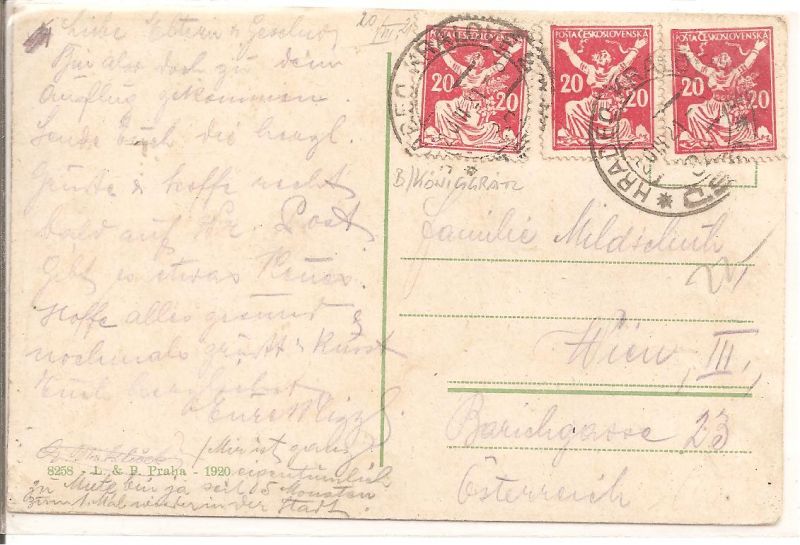 Liebe Eltern & Geschw.
Bin also doch zu dem
Ausflug gekommen.
Sende Euch die herzl.
Grüsse & hoffe recht
bald auf Hr. Post.
Gibt es etwas Neues.
Hoffe alles gesund &
nochmals grüsst & küsst
Euch herzlichst
Eure Mizzi.
(Mir ist ganz
eigentümlich
zu Mute bin ja seit 15 Monaten
zum 1. Mal wieder in der Stadt.
8258 - L. & P. Praha - 1920.
20/III 21
POŠTA ČESKOSLOVENSKÁ
20 20
POŠTA ČESKOSLOVENSKÁ
20 20
POŠTA ČESKOSLOVENSKÁ
20 20
HRADEC KRÁLOVÉ
HRADEC KRÁLOVÉ
B/KÖNIGGRÄTZ
Familie Mildschuh
Wien III,
Barichgasse 23
Österreich